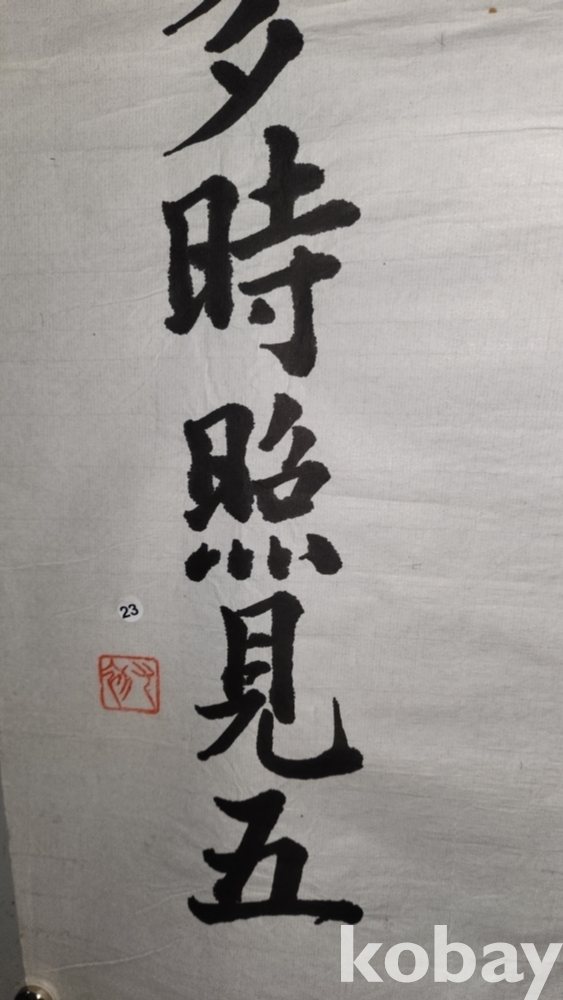 多時照見五
23
kobay